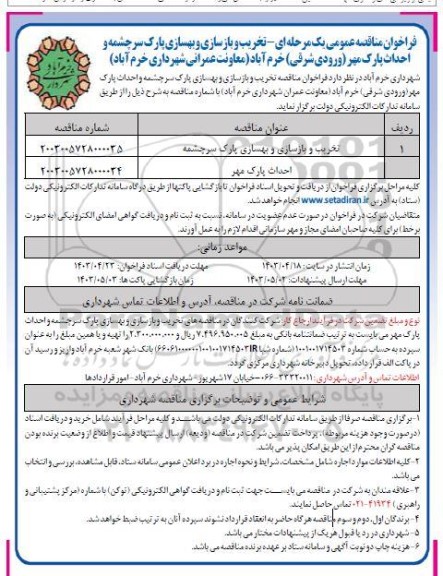 فراخوان مناقصه عمومی یک مرحله ای - تخریب و بازسازی و بهسازی پارک سرچشمه و
احداث پارک مهر (ورودی شرقی) خرم آباد (معاونت عمرانی شهرداری خرم آباد)
شهرداری خرم آباد در نظر دارد فراخوان مناقصه تخریب و بازسازی و بهسازی پارک سرچشمه و احداث پارک
مهر (ورودی شرقی) خرم آباد (معاونت عمران شهرداری خرم آباد) با شماره مناقصه به شرح ذیل را از طریق
سامانه تدارکات الکترونیکی دولت برگزار نماید.
ردیف عنوان مناقصه شماره مناقصه
۱ تخریب و بازسازی و بهسازی پارک سرچشمه ۲۰۰۳۰۰۵۷۲۸۰۰۰۰۳۵
احداث پارک مهر ۲۰۰۳۰۰۵۷۲۸۰۰۰۰۳۴
کلیه مراحل برگزاری فراخوان از دریافت و تحویل اسناد فراخوان تا بازگشایی پاکتها از طریق درگاه سامانه تدارکات الکترونیکی دولت
(ستاد) به آدرس www.setadiran.ir انجام خواهد شد.
متقاضیان شرکت در فراخوان در صورت عدم عضویت در سامانه، نسبت به ثبت نام و دریافت گواهی امضای الکترونیکی (به صورت
برخط) برای کلیه صاحبان امضای مجاز و مهر سازمانی اقدام لازم را به عمل آورند.
مواعد زمانی:
زمان انتشار در سایت: ۱۴۰۳/۰۴/۱۸ مهلت دریافت اسناد فراخوان: ۱۴۰۳/۰۴/۲۳
مهلت ارسال پیشنهادات: ۱۴۰۳/۰۵/۰۲ زمان بازگشایی پاکت ها: ۱۴۰۳/۰۵/۰۳
ضمانت نامه شرکت در مناقصه، آدرس و اطلاعات تماس شهرداری
نوع و مبلغ تضمین شرکت در فرآیند ارجاع کار: شرکت کنندگان در مناقصه های تخریب و بازسازی و بهسازی پارک سرچشمه و احداث
پارک مهر می بایست به ترتیب ضمانتنامه بانکی به مبلغ ۷.۴۹۶.۹۵۰.۰۰۵ ریال و ۲.۳۰۰.۰۰۰.۰۰۰ را تهیه و یا همین مبلغ را به عنوان
سپرده به حساب شماره
بانک شهر شعبه خرم آباد واریز و رسید آن
در پاکت الف قرار داده، تحویل دبیرخانه شهرداری مرکزی گردد.
اطلاعات تماس و آدرس شهرداری: ۳۳۳۲۰۰۱۱-۰۶۶ خیابان ۱۷ شهریور - شهرداری خرم آباد - امور قراردادها
شرایط عمومی و توضیحات برگزاری مناقصه شهرداری
۱- برگزاری مناقصه صرفا از طریق سامانه تدارکات الکترونیکی دولت می باشند و کلیه مراحل فرآیند شامل خرید و دریافت اسناد
(در صورت وجود هزینه مربوطه)، پرداخت تضمین شرکت در مناقصه (ودیعه) ارسال پیشنهاد قیمت و اطلاع از وضعیت برنده بودن
مناقصه گران محترم از این طریق امکان پذیر می باشد.
۲- کلیه اطلاعات موارد اجاره شامل مشخصات، شرایط و نحوه اجاره در برد اعلان عمومی سامانه ستاد، قابل مشاهده، بررسی و انتخاب
می باشد.
۳- علاقه مندان به شرکت در مناقصه می بایست جهت ثبت نام و دریافت گواهی الکترونیکی (توکن) با شماره (مرکز پشتیبانی و
راهبری) ۴۱۹۳۴-۰۲۱ تماس حاصل نمایند.
۴- برندگان اول، دوم و سوم مناقصه هرگاه حاضر به انعقاد قرارداد نشوند سپرده آنان به ترتیب ضبط خواهد شد.
۵- شهرداری در رد یا قبول هریک از پیشنهادات مختار می باشد.
۶- هزینه چاپ دو نوبت آگهی و سامانه ستاد بر عهده برنده مناقصه می باشد.